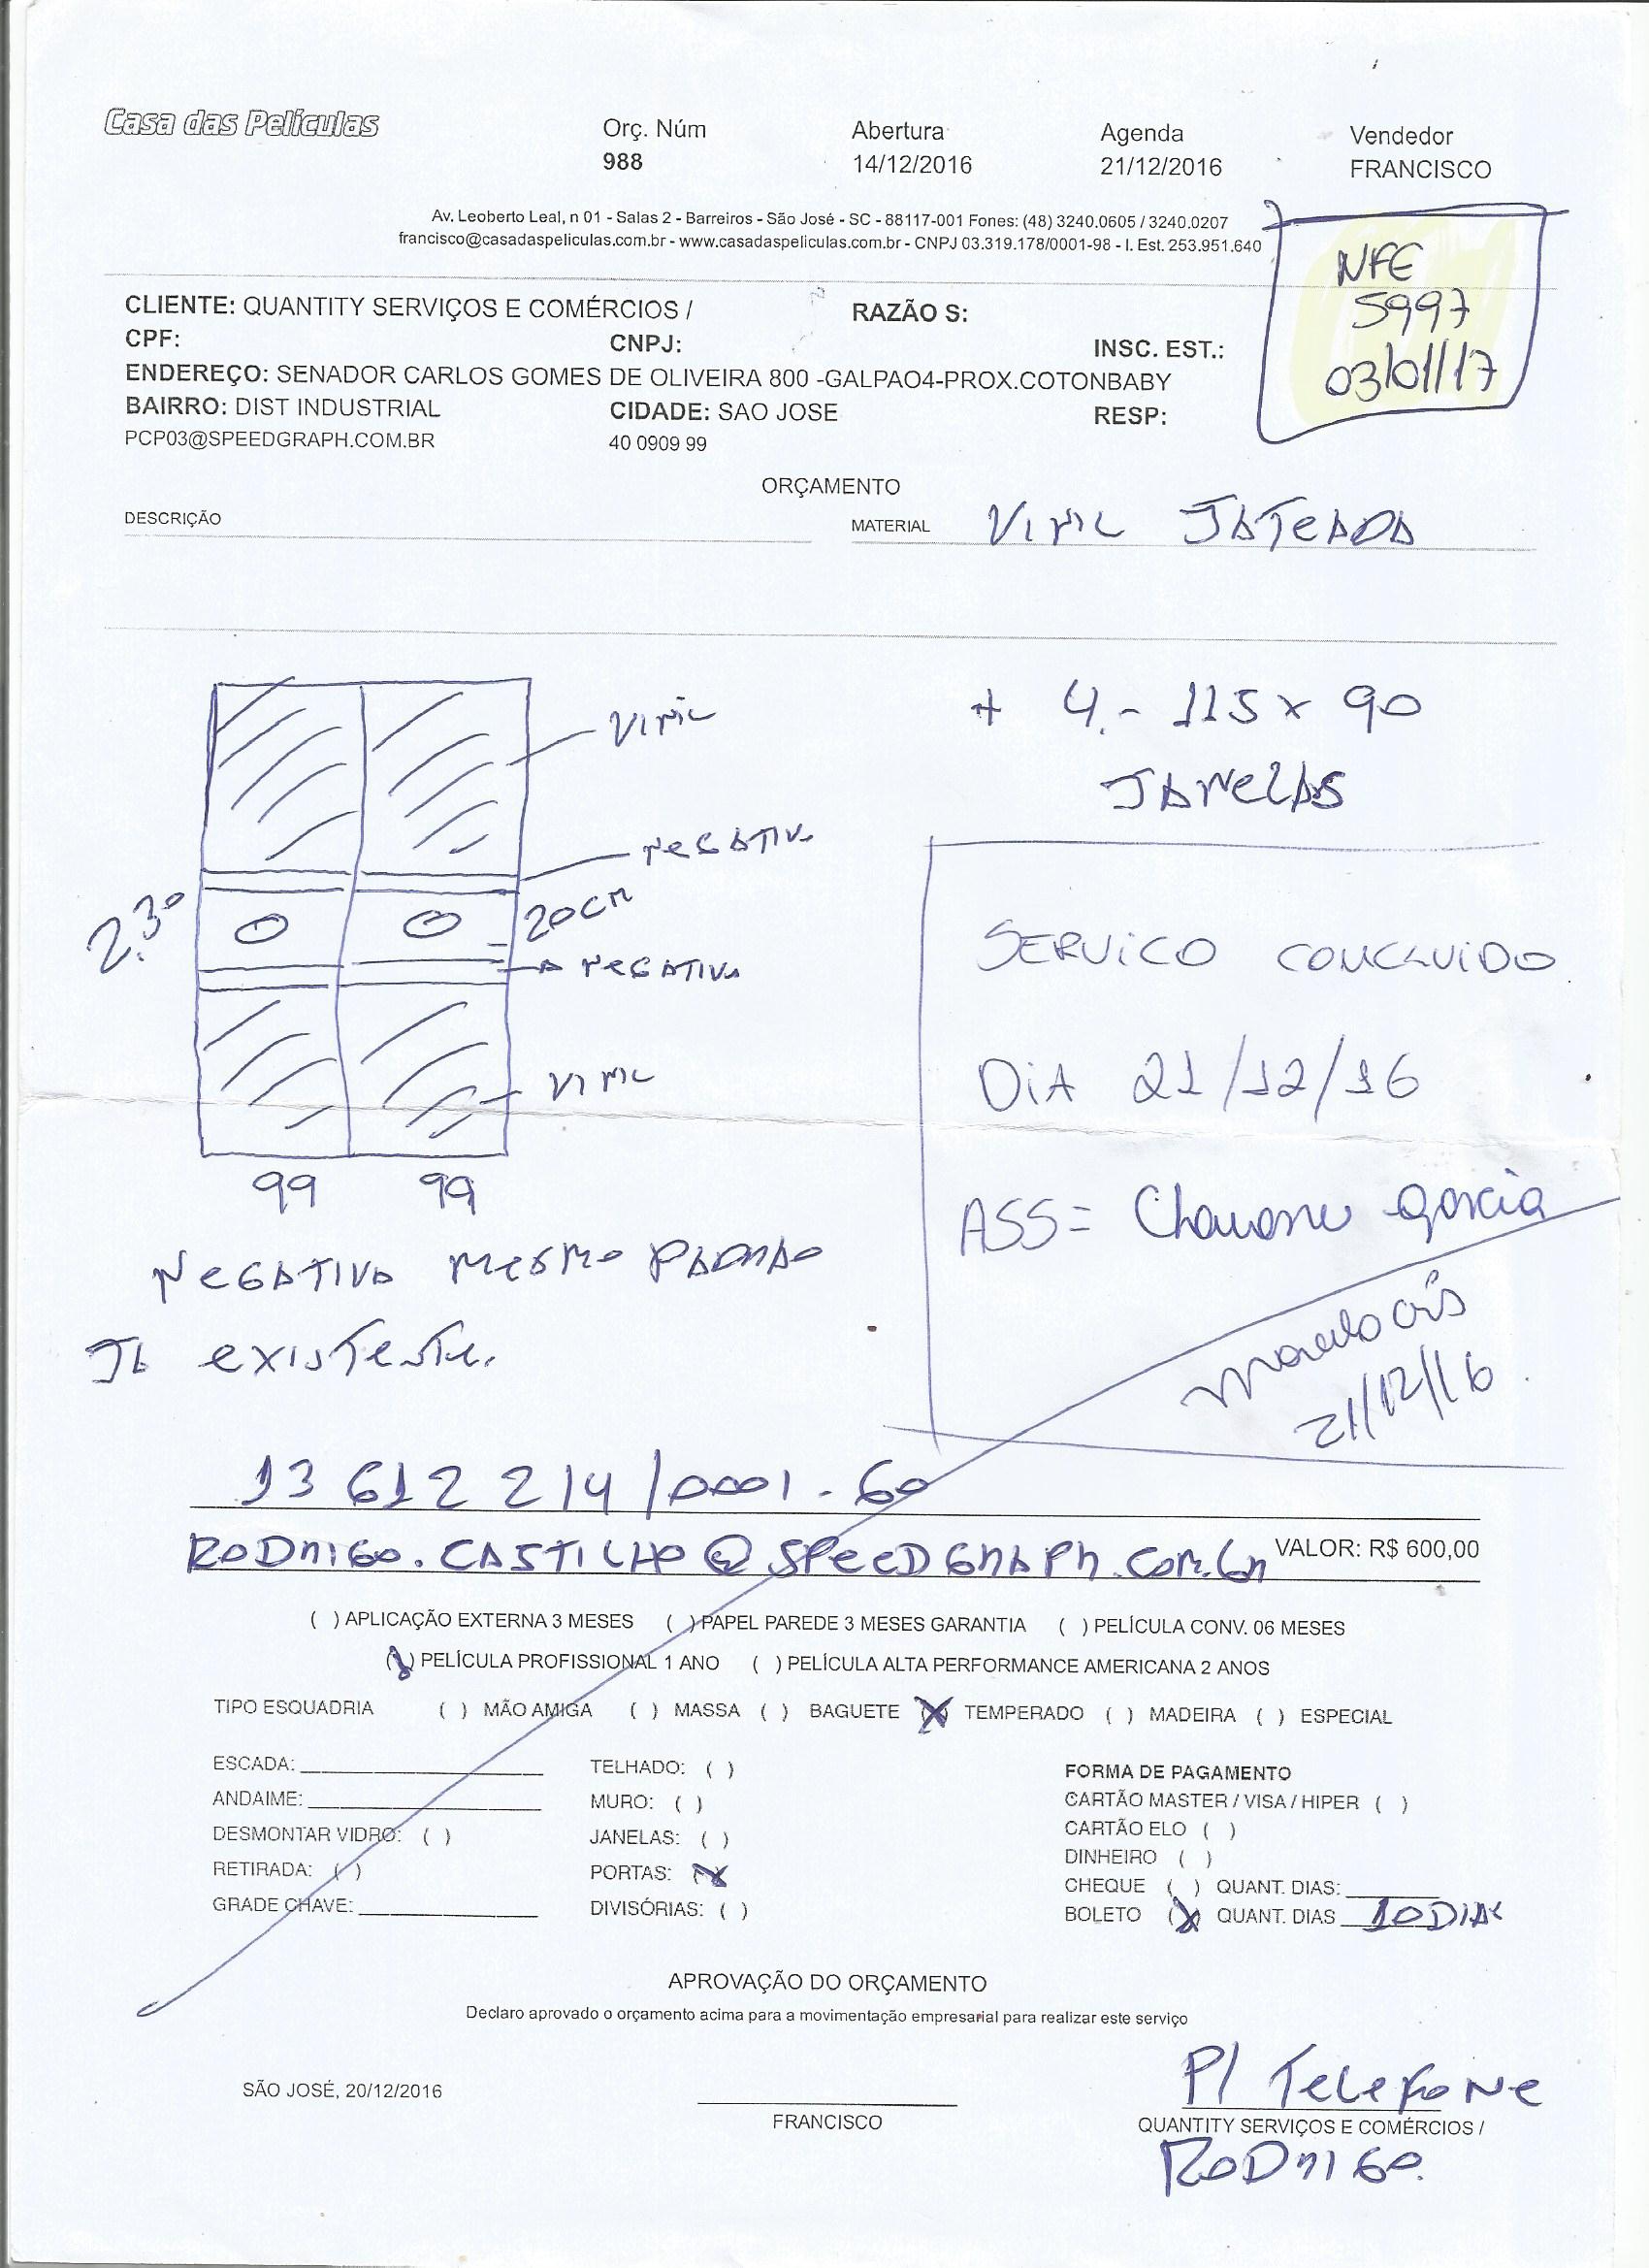 Casa das Películas
Orç. Núm Abertura Agenda Vendedor
988 14/12/2016 21/12/2016 FRANCISCO
Av. Leoberto Leal, n 01 - Salas 2 - Barreiros - São José - SC - 88117-001 Fones: (48) 3240.0605 / 3240.0207
francisco@casadaspeliculas.com.br - www.casadaspeliculas.com.br - CNPJ 03.319.178/0001-98 - I. Est. 253.951.640
NFE
5997
03/01/17
CLIENTE: QUANTITY SERVIÇOS E COMÉRCIOS / RAZÃO S:
CPF: CNPJ: INSC. EST.:
ENDEREÇO: SENADOR CARLOS GOMES DE OLIVEIRA 800 -GALPAO4-PROX.COTONBABY
BAIRRO: DIST INDUSTRIAL CIDADE: SAO JOSE RESP:
PCP03@SPEEDGRAPH.COM.BR 40 0909 99
ORÇAMENTO
DESCRIÇÃO MATERIAL VINIL JATEADA
VINIL
NEGATIVO
2.30
20CM
NEGATIVO
VINIL
99 99
+ 4.- 115 x 90
JANELAS
SERVICO CONCLUIDO
DiA 21/12/16
ASS= garcia
21/12/16
NEGATIVO MESMO PADRAO
JA
13 612 214/0001-60
RODRIGO.CASTILHO@SPEEDGRAPH.COM.BR VALOR: R$ 600,00
( ) APLICAÇÃO EXTERNA 3 MESES ( ) PAPEL PAREDE 3 MESES GARANTIA ( ) PELÍCULA CONV. 06 MESES
(X) PELÍCULA PROFISSIONAL 1 ANO ( ) PELÍCULA ALTA PERFORMANCE AMERICANA 2 ANOS
TIPO ESQUADRIA ( ) MÃO AMIGA ( ) MASSA ( ) BAGUETE (X) TEMPERADO ( ) MADEIRA ( ) ESPECIAL
ESCADA: TELHADO: ( ) FORMA DE PAGAMENTO
ANDAIME: MURO: ( ) CARTÃO MASTER / VISA / HIPER ( )
DESMONTAR VIDRO: ( ) JANELAS: ( ) CARTÃO ELO ( )
RETIRADA: ( ) PORTAS: (X) DINHEIRO ( )
GRADE CHAVE: DIVISÓRIAS: ( ) CHEQUE ( ) QUANT. DIAS:
BOLETO (X) QUANT. DIAS 10 DIAS
APROVAÇÃO DO ORÇAMENTO
Declaro aprovado o orçamento acima para a movimentação empresarial para realizar este serviço
SÃO JOSÉ, 20/12/2016
P/ TELEFONE
FRANCISCO QUANTITY SERVIÇOS E COMÉRCIOS /
RODRIGO.